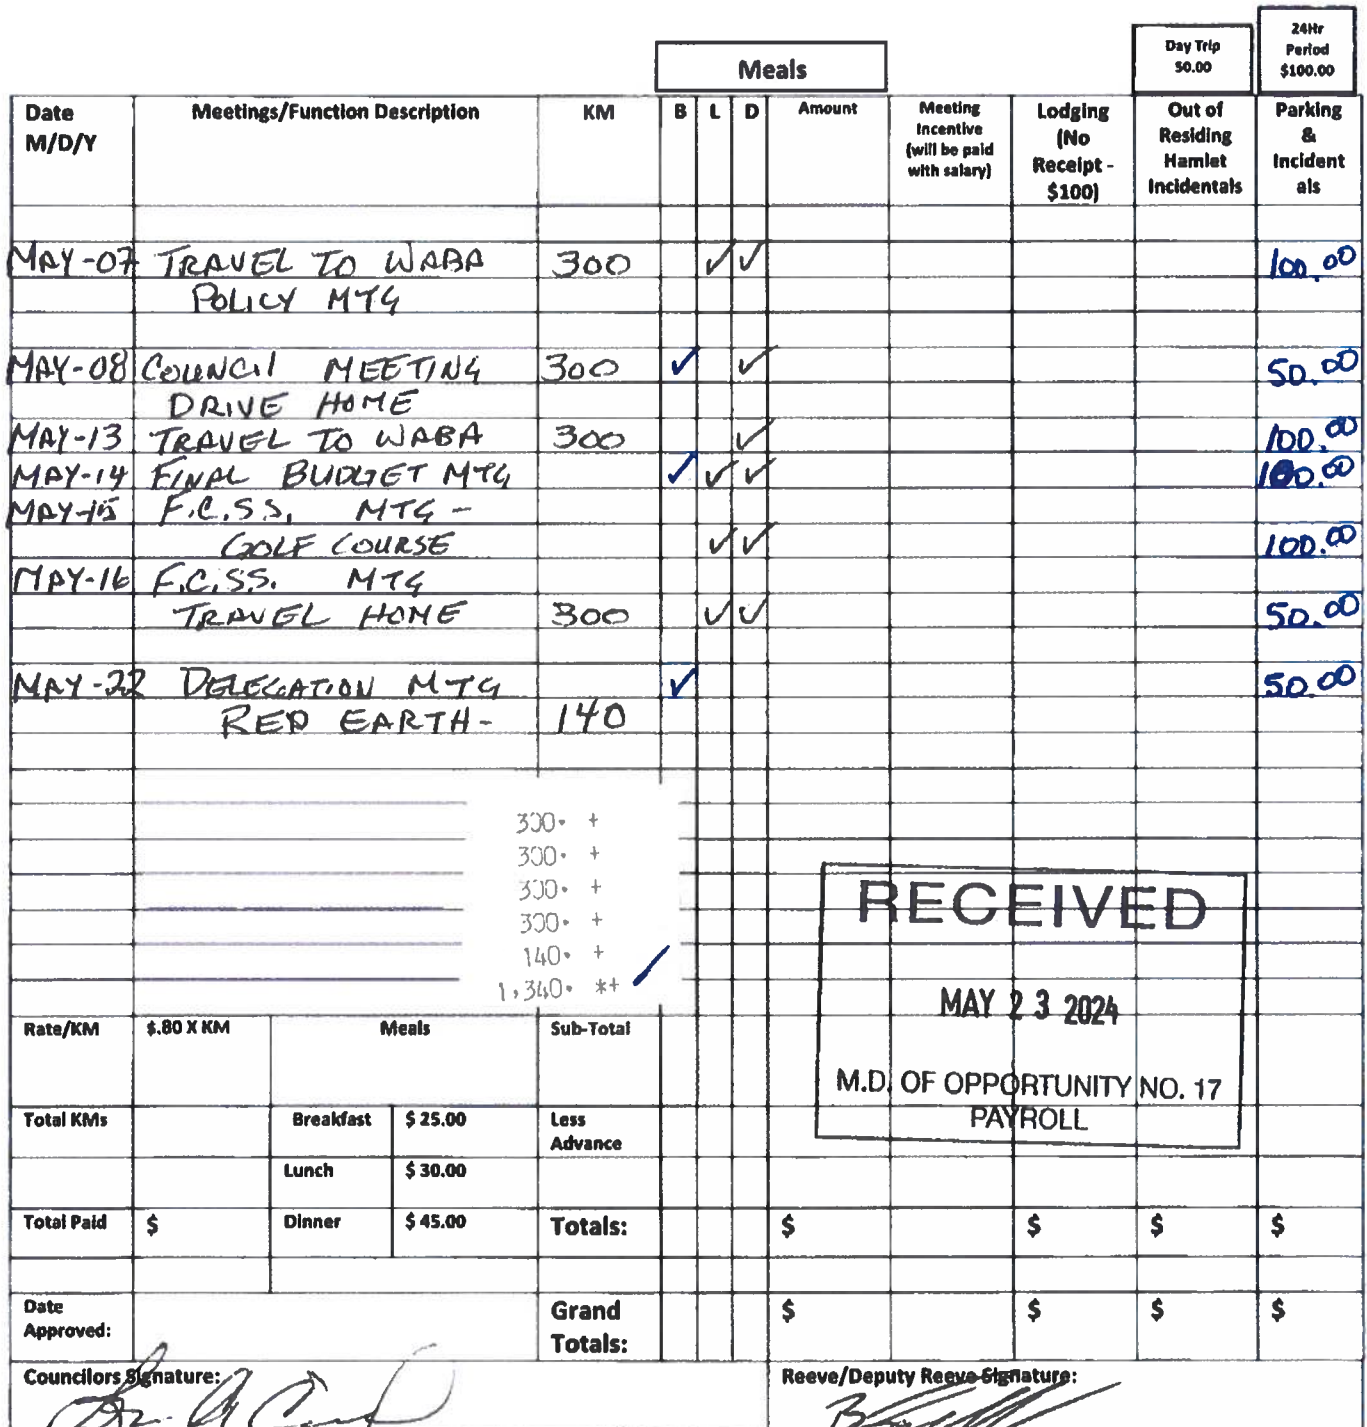 Meals
Day Trip
50.00
24Hr
Period
$100.00
Date
M/D/Y
Meetings/Function Description
KM
B L D
Amount
Meeting
Incentive
(will be paid
with salary)
Lodging
(No
Receipt -
$100)
Out of
Residing
Hamlet
Incidentals
Parking
&
Incident
als
MAY-07 TRAVEL TO WABA 300 ✓ ✓ 100.00
POLICY MTG
MAY-08 COUNCIL MEETING 300 ✓ ✓ 50.00
DRIVE HOME
MAY-13 TRAVEL TO WABA 300 ✓ 100.00
MAY-14 FINAL BUDGET MTG ✓ ✓ ✓ 100.00
MAY-15 F.C.S.S. MTG -
GOLF COURSE ✓ ✓ 100.00
MAY-16 F.C.S.S. MTG
TRAVEL HOME 300 ✓ ✓ 50.00
MAY-22 DELEGATION MTG ✓ 50.00
RED EARTH- 140
300. +
300. +
300. +
300. +
140. +
1,340. *+ ✓
RECEIVED
MAY 23 2024
M.D. OF OPPORTUNITY NO. 17
PAYROLL
Rate/KM $.80 X KM Meals Sub-Total
Total KMs Breakfast $ 25.00 Less
Advance
Lunch $ 30.00
Total Paid $ Dinner $ 45.00 Totals: $ $ $ $
Date
Approved:
Grand
Totals:
$ $ $ $
Councilors Signature:
Reeve/Deputy Reeve Signature: